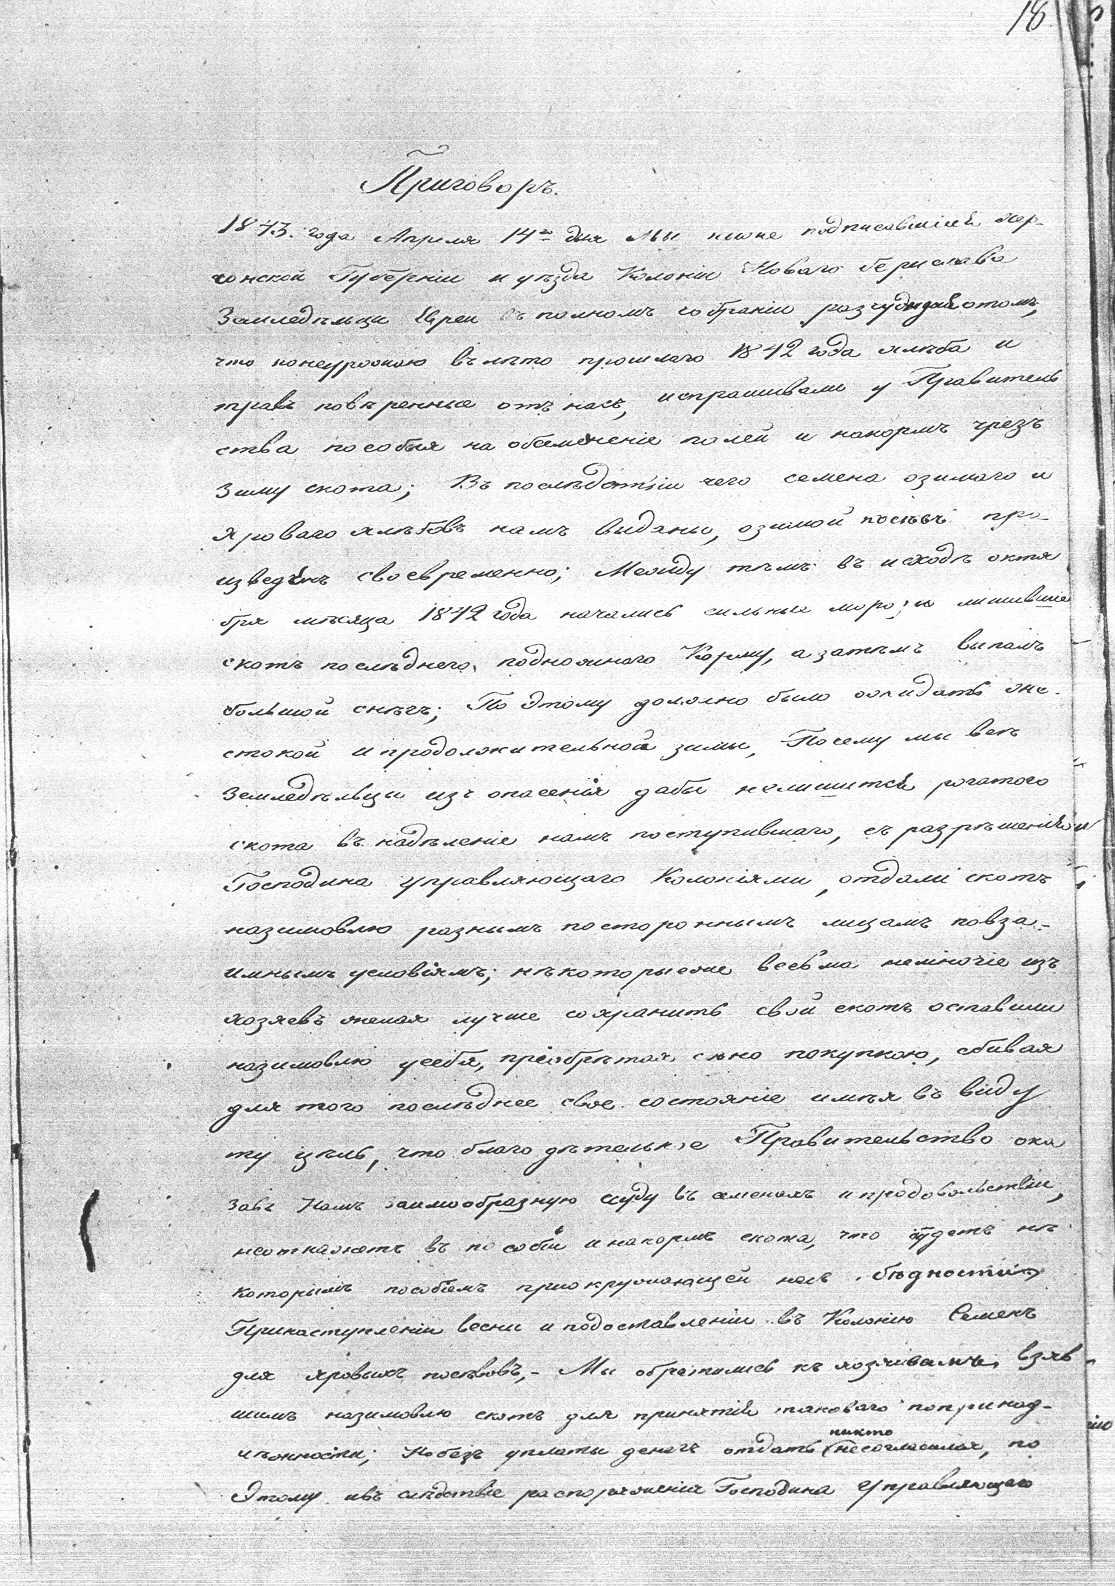 18
Приговоръ.
1843. года Апреля 14го дня Мы ниже подписавшіеся Хер-
сонской Губерніи и уѣзда Колоніи Новаго берислава
Земледѣльци Евреи въ полномъ собраніи разсуждая отомъ,
что понеурожаю въ лѣто прошлаго 1842 года хлѣба и
травъ повѣренные отъ насъ, испрашивали у Правитель
ства пособія на обсемененіе полей и накормъ чрезъ
зиму скота; Въ послѣдствіи чего семена озимаго и
яроваго хлѣбовъ намъ выданы, озимой посѣвъ про-
изведенъ своевременно; Между тѣмъ въ исходѣ октя
бря мѣсяца 1842 года начались сильные морозы лишившие
скотъ послѣдняго подножнаго Корму, а затѣмъ выпалъ
большой снѣгъ; По Этому должно было ожидать же-
стокой и продолжительной зимы, Посему мы всѣ
Земледѣльцы изъ опасенія дабы нелишится рогатого
скота въ надѣленіе намъ поступившаго, съ разрѣшенія
Господина управляющаго Колоніями, отдали скотъ
назимовлю разнымъ постороннымъ лицамъ повза-
имнымъ условіямъ; нѣкоторые же весьма немногіе изъ
хозяевъ желая лучше сохранить свой скотъ оставили
назимовлю у себя, пріобрѣтая сѣно покупкою, сбивая
для того послѣднее свое состояніе имѣя въ виду
ту цѣль, что благодѣтельное Правительство ока
завъ Намъ заимообразную ссуду въ семенахъ и продовольствіи,
неоткажетъ въ пособіи и накормъ скота, что будетъ нѣ
которымъ пособіемъ приокружающей насъ бѣдности
Принаступленіи весны и подоставленіи въ Колонію Семенъ
для яровыхъ посѣвовъ,- Мы обратились къ хозяивамъ, взяв
шимъ назимовлю скотъ для принятія таковаго попринад-
лѣжности; Но безъ уплаты денегъ отдать никто несогласился, по
Этому ивъ слѣдствіе распоряженія Господина Управляющаго